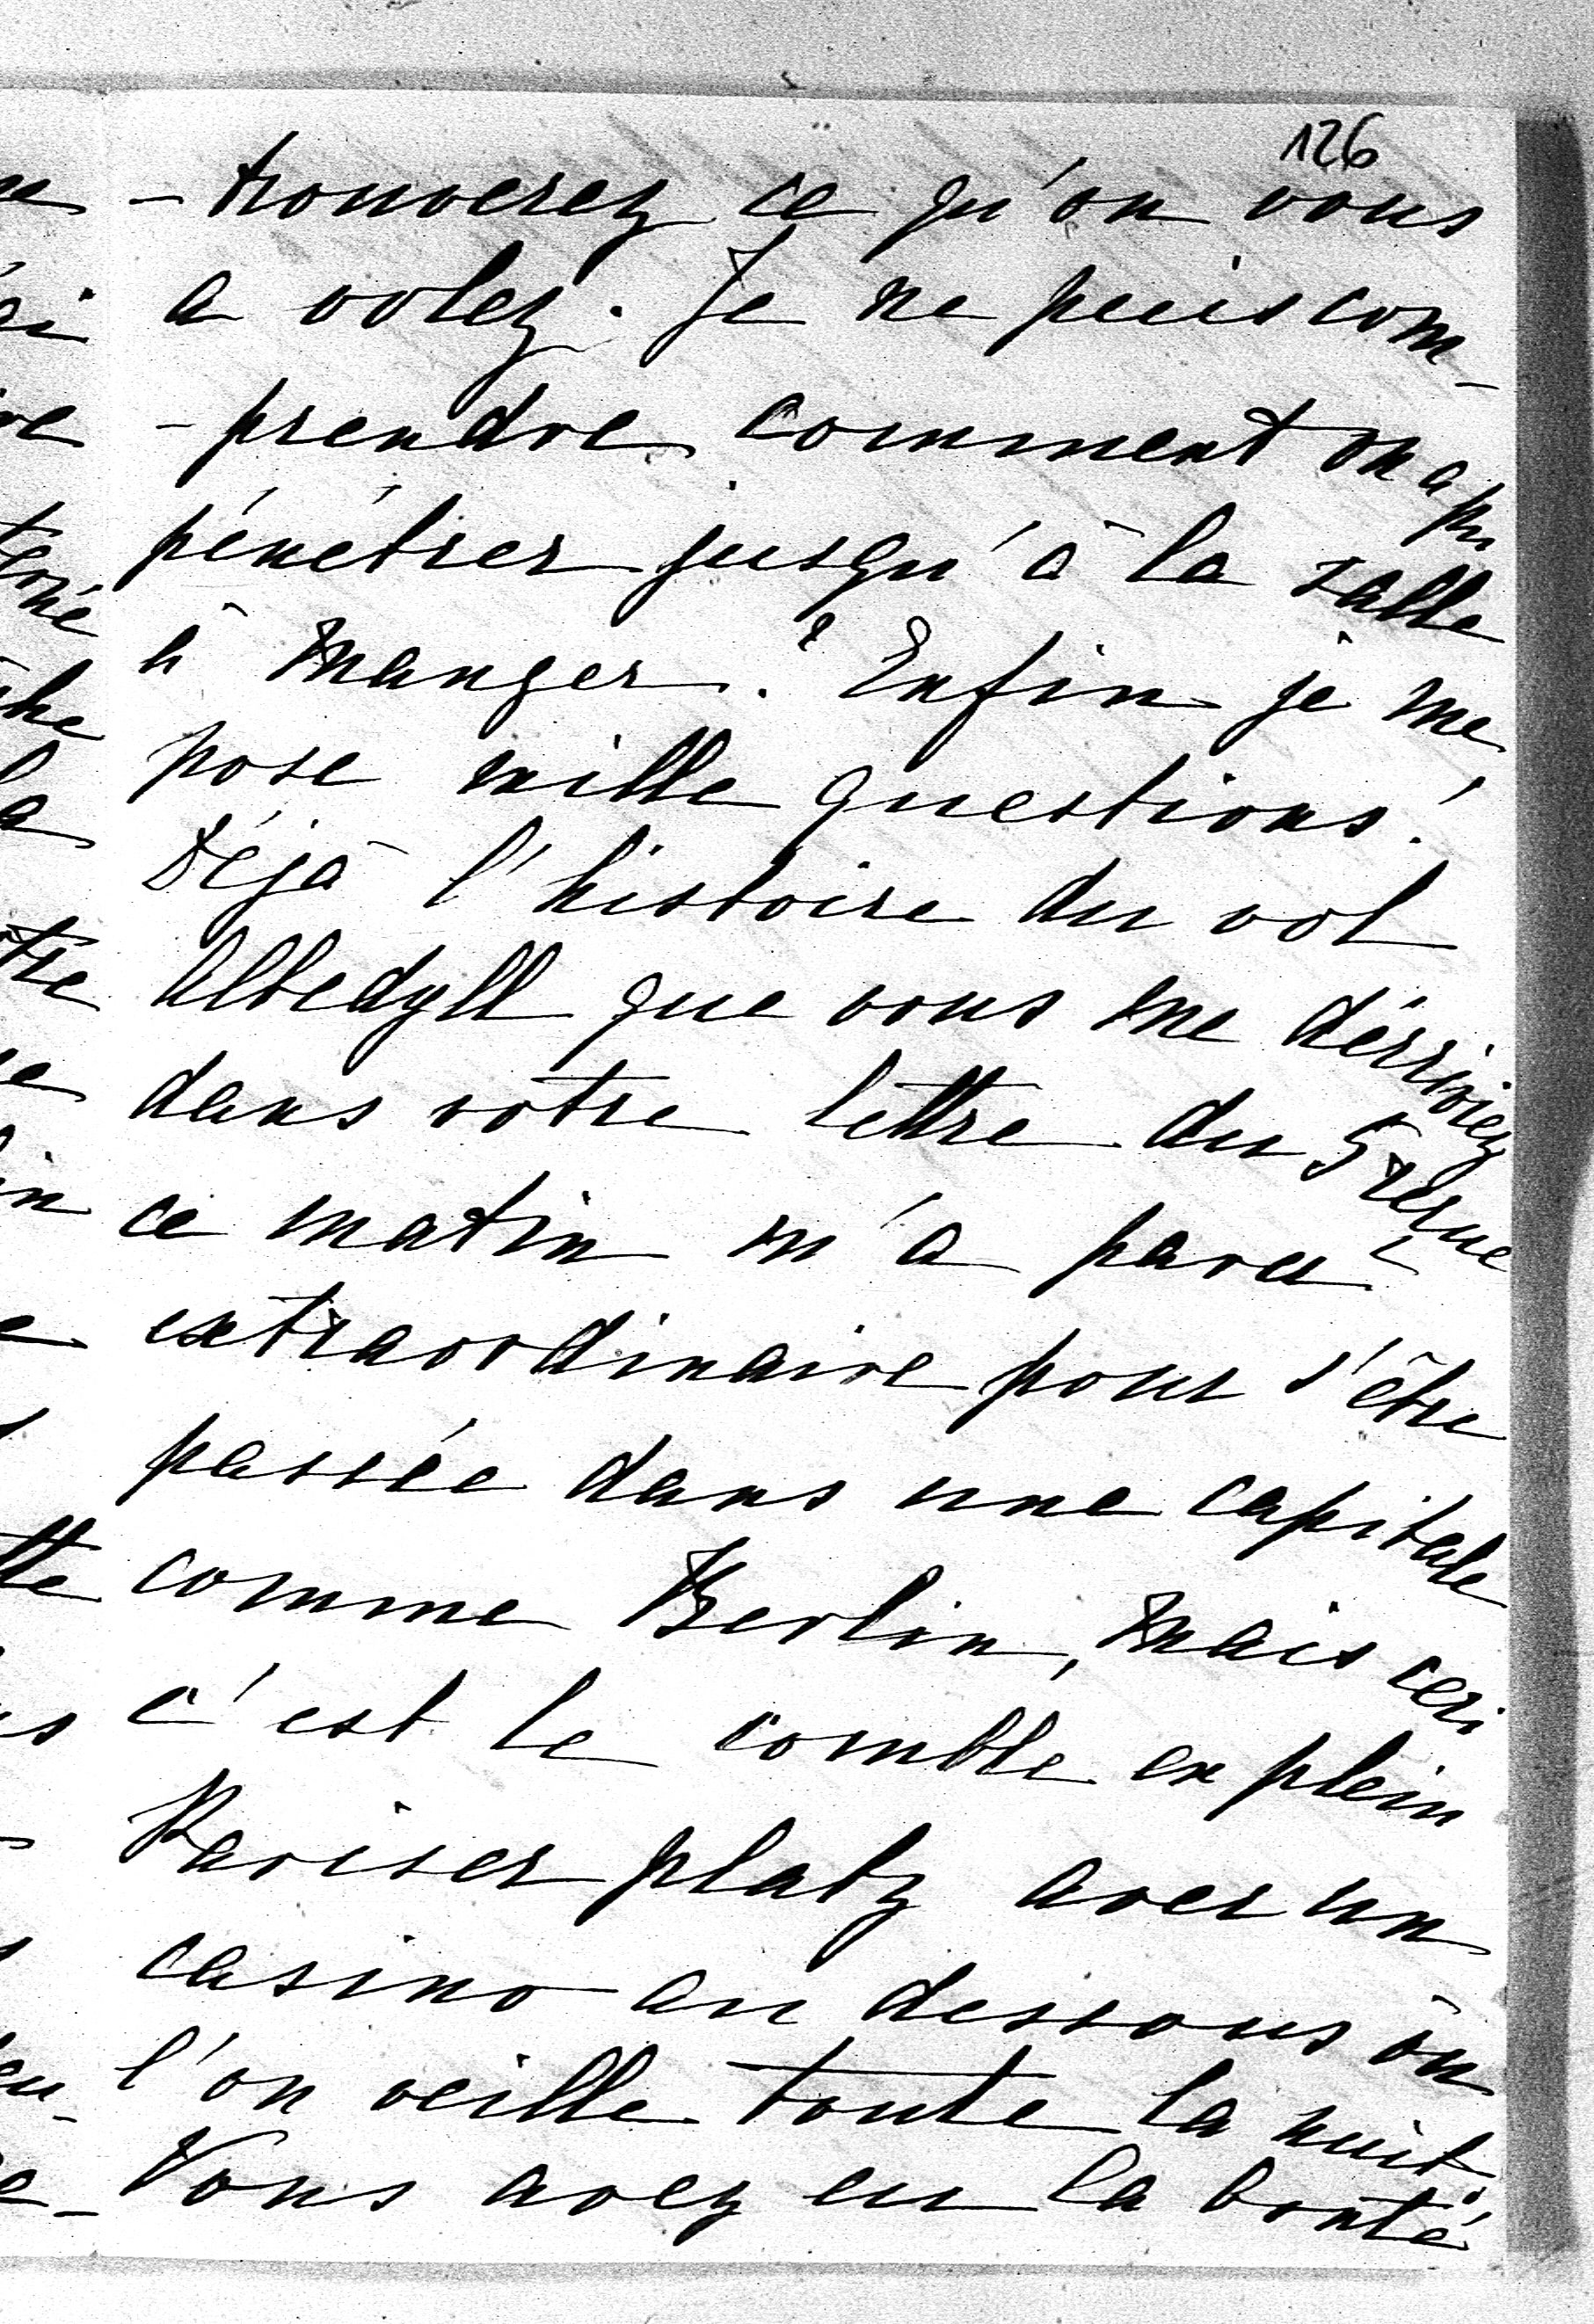 126
- trouverez ce qu'on vous
a volez. Je ne puis com-
- prendre comment on a pu
pénétrer jusqu'à la salle
à manger? Enfin je me
pose mille questions!
Déjà l'histoire du vol
Albedyll que vous me décriviez
dans votre lettre du 5 reçue
ce matin m'a paru
extraordinaire pour s'être
passée dans une capitale
comme Berlin, mais ceci
c'est le comble en plein
Pariser platz avec un
casino au dessous où
l'on veille toute la nuit.
Vous avez eu la bonté